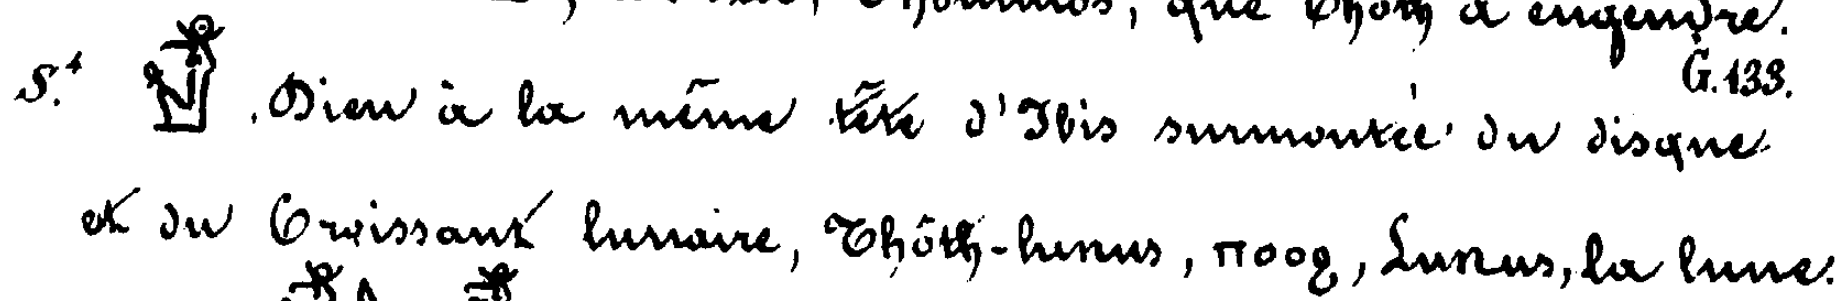 que Thôth a engendré.
S.⁴ . Dieu à la même tête d'Ibis surmontée du disque G.133.
et du Croissant lunaire, Thôth-lunus, ⲡⲟⲟϩ, Lunus, la lune.